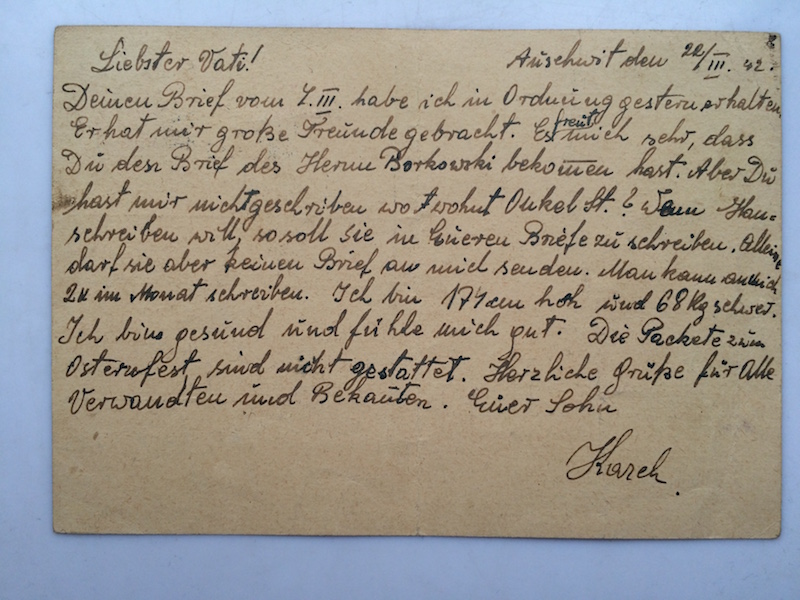 Liebster Vati! Auschwit den 22/III. 42.
Deinen Brief vom 7.III. habe ich in Ordnung gestern erhalten.
Er hat mir große Freunde gebracht. Es freut mich sehr, dass
Du den Brief des Herrn Borkowski bekommen hast. Aber Du
hast mir nicht geschriben wo wohnt Onkel St.? Wenn Han-
schreiben will, so soll sie in Eueren Briefe zu schreiben. Alleine
darf sie aber keinen Brief an mich senden. Man kann an mich
2x im Monat schreiben. Ich bin 174 cm hoh und 68 kg schwer.
Ich bin gesund und fühle mich gut. Die Packete zum
Osternfest, sind nicht gestattet. Herzliche Grüße für Alle
Verwandten und Bekanten. Euer Sohn